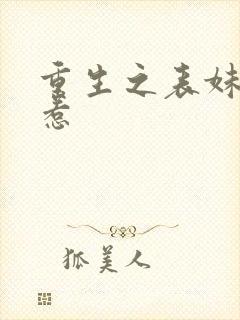 重生之表妹
惹
狐美人